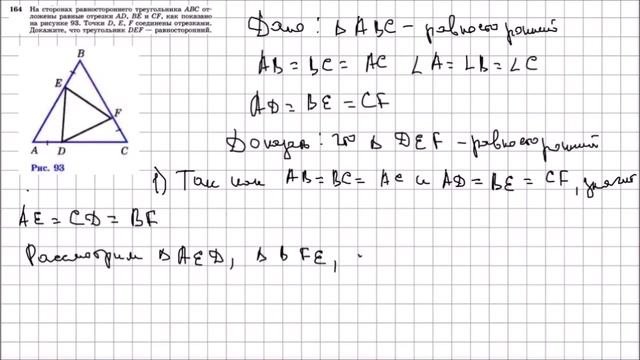 164 На сторонах равностороннего треугольника ABC от-
ложены равные отрезки AD, BE и CF, как показано
на рисунке 93. Точки D, E, F соединены отрезками.
Докажите, что треугольник DEF — равносторонний.
B
E
F
A D C
Рис. 93
Дано: Δ ABC – равносторонний
AB = BC = AC ∠A = ∠B = ∠C
AD = BE = CF
Доказать: что Δ DEF – равносторонний
1) Так как AB = BC = AC и AD = BE = CF, значит
AE = CD = BF
Рассмотрим Δ AED, Δ BFE,